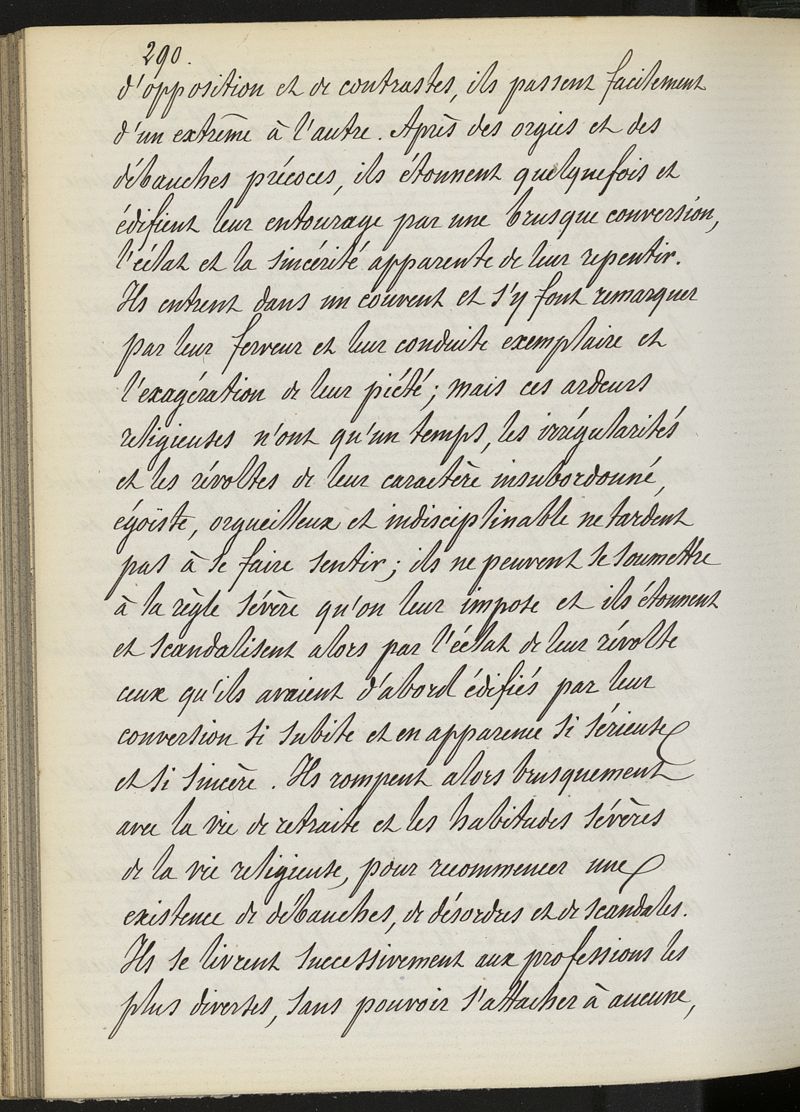 290.
d'opposition et de contrastes, ils passent facilement
d'un extrême à l'autre. Après des orgies et des
débauches précoces, ils étonnent quelquefois et
édifient leur entourage par une brusque conversion,
l'éclat et la sincérité apparente de leur repentir.
Ils entrent dans un couvent et s'y font remarquer
par leur ferveur et leur conduite exemplaire et
l'exagération de leur piété ; mais ces ardeurs
religieuses n'ont qu'un temps, les irrégularités
et les révoltes de leur caractère insubordonné,
égoïste, orgueilleux et indisciplinable ne tardent
pas à se faire sentir ; ils ne peuvent se soumettre
à la règle sévère qu'on leur impose et ils étonnent
et scandalisent alors par l'éclat de leur révolte
ceux qu'ils avaient d'abord édifiés par leur
conversion si subite et en apparence si sérieuse
et si sincère. Ils rompent alors brusquement
avec la vie de retraite et les habitudes sévères
de la vie religieuse, pour recommencer une
existence de débauches, de désordres et de scandales.
Ils se livrent successivement aux professions les
plus diverses, sans pouvoir s'attacher à aucune,